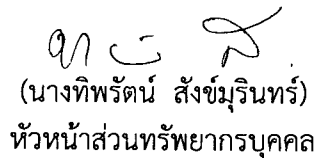 (นางทิพรัตน์ สังข์มุรินทร์)
หัวหน้าส่วนทรัพยากรบุคคล